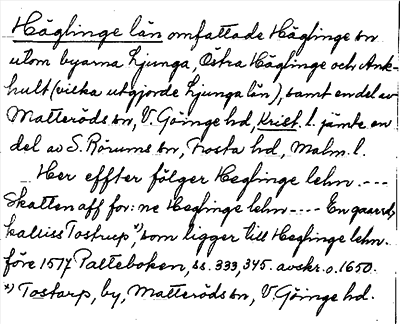 Häglinge län omfattade Häglinge sn
utom byarna Ljunga, Östra Häglinge och Ank-
hult (vicka utgjorde Ljunga län), samt en del av
Matteröds sn, V. Göinge hd, Krist. l. jämte en
del av S. Rörums sn, Frosta hd, Malm. l.
Her effter fölger Heglinge lehn. ---
Skatten aff for:ne Heglinge lehn ---- En gaard
kaliiss Tostrup,*) som ligger till Heglinge lehn.
före 1517 Palteboken, ss. 333, 345. avskr. o. 1650.
*) Tostarp, by, Matteröds sn, V. Göinge hd.